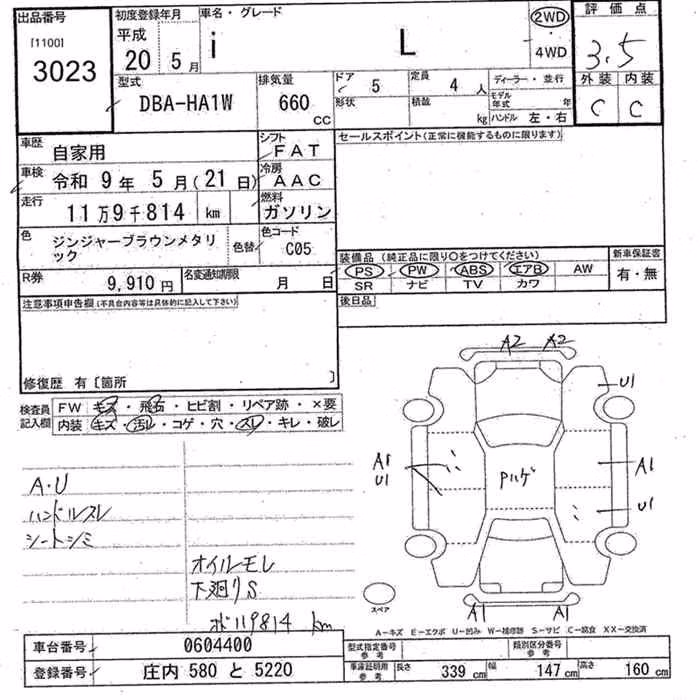 出品番号
[1100]
3023
初度登録年月
平成
20 5月
車名・グレード
i L
2WD
・
4WD
評価点
3.5
外装 内装
C C
型式
DBA-HA1W
排気量
660 CC
ドア 5
定員 4 人
形状
積載 kg
ディーラー・並行
モデル年式 年
ハンドル 左・右
車歴
自家用
シフト
FAT
車検
令和 9年 5月(21日)
冷房
AAC
走行
11万9千814 km
燃料
ガソリン
色
ジンジャーブラウンメタリック
色替
色コード
C05
R券
9,910円
名変通知期限
月 日
セールスポイント(正常に機能するものに限ります)
装備品 (純正品に限り○をつけてください)
PS PW ABS エアB AW
SR ナビ TV カワ
新車保証書
有・無
後日品
注意事項申告欄(不具合内容等は具体的に記入して下さい)
修復歴 有〔箇所 〕
検査員記入欄
FW キズ・飛石・ヒビ割・リペア跡・×要
内装 キズ・汚レ・コゲ・穴・スレ・キレ・破レ
A・U
ハンドルスレ
シートシミ
オイルモレ
下廻りS
ボ119814 km
A2 A2
U1
A1
U1
Pハゲ
A1
U1
A1 A1
スペア
A-キズ E-エクボ U-凹み W-補修跡 S-サビ C-腐食 XX-交換済
車台番号
0604400
登録番号
庄内 580 と 5220
型式指定番号
参考
類別区分番号
参考
車庫証明用
参考
長さ 339 cm
幅 147 cm
高さ 160 cm